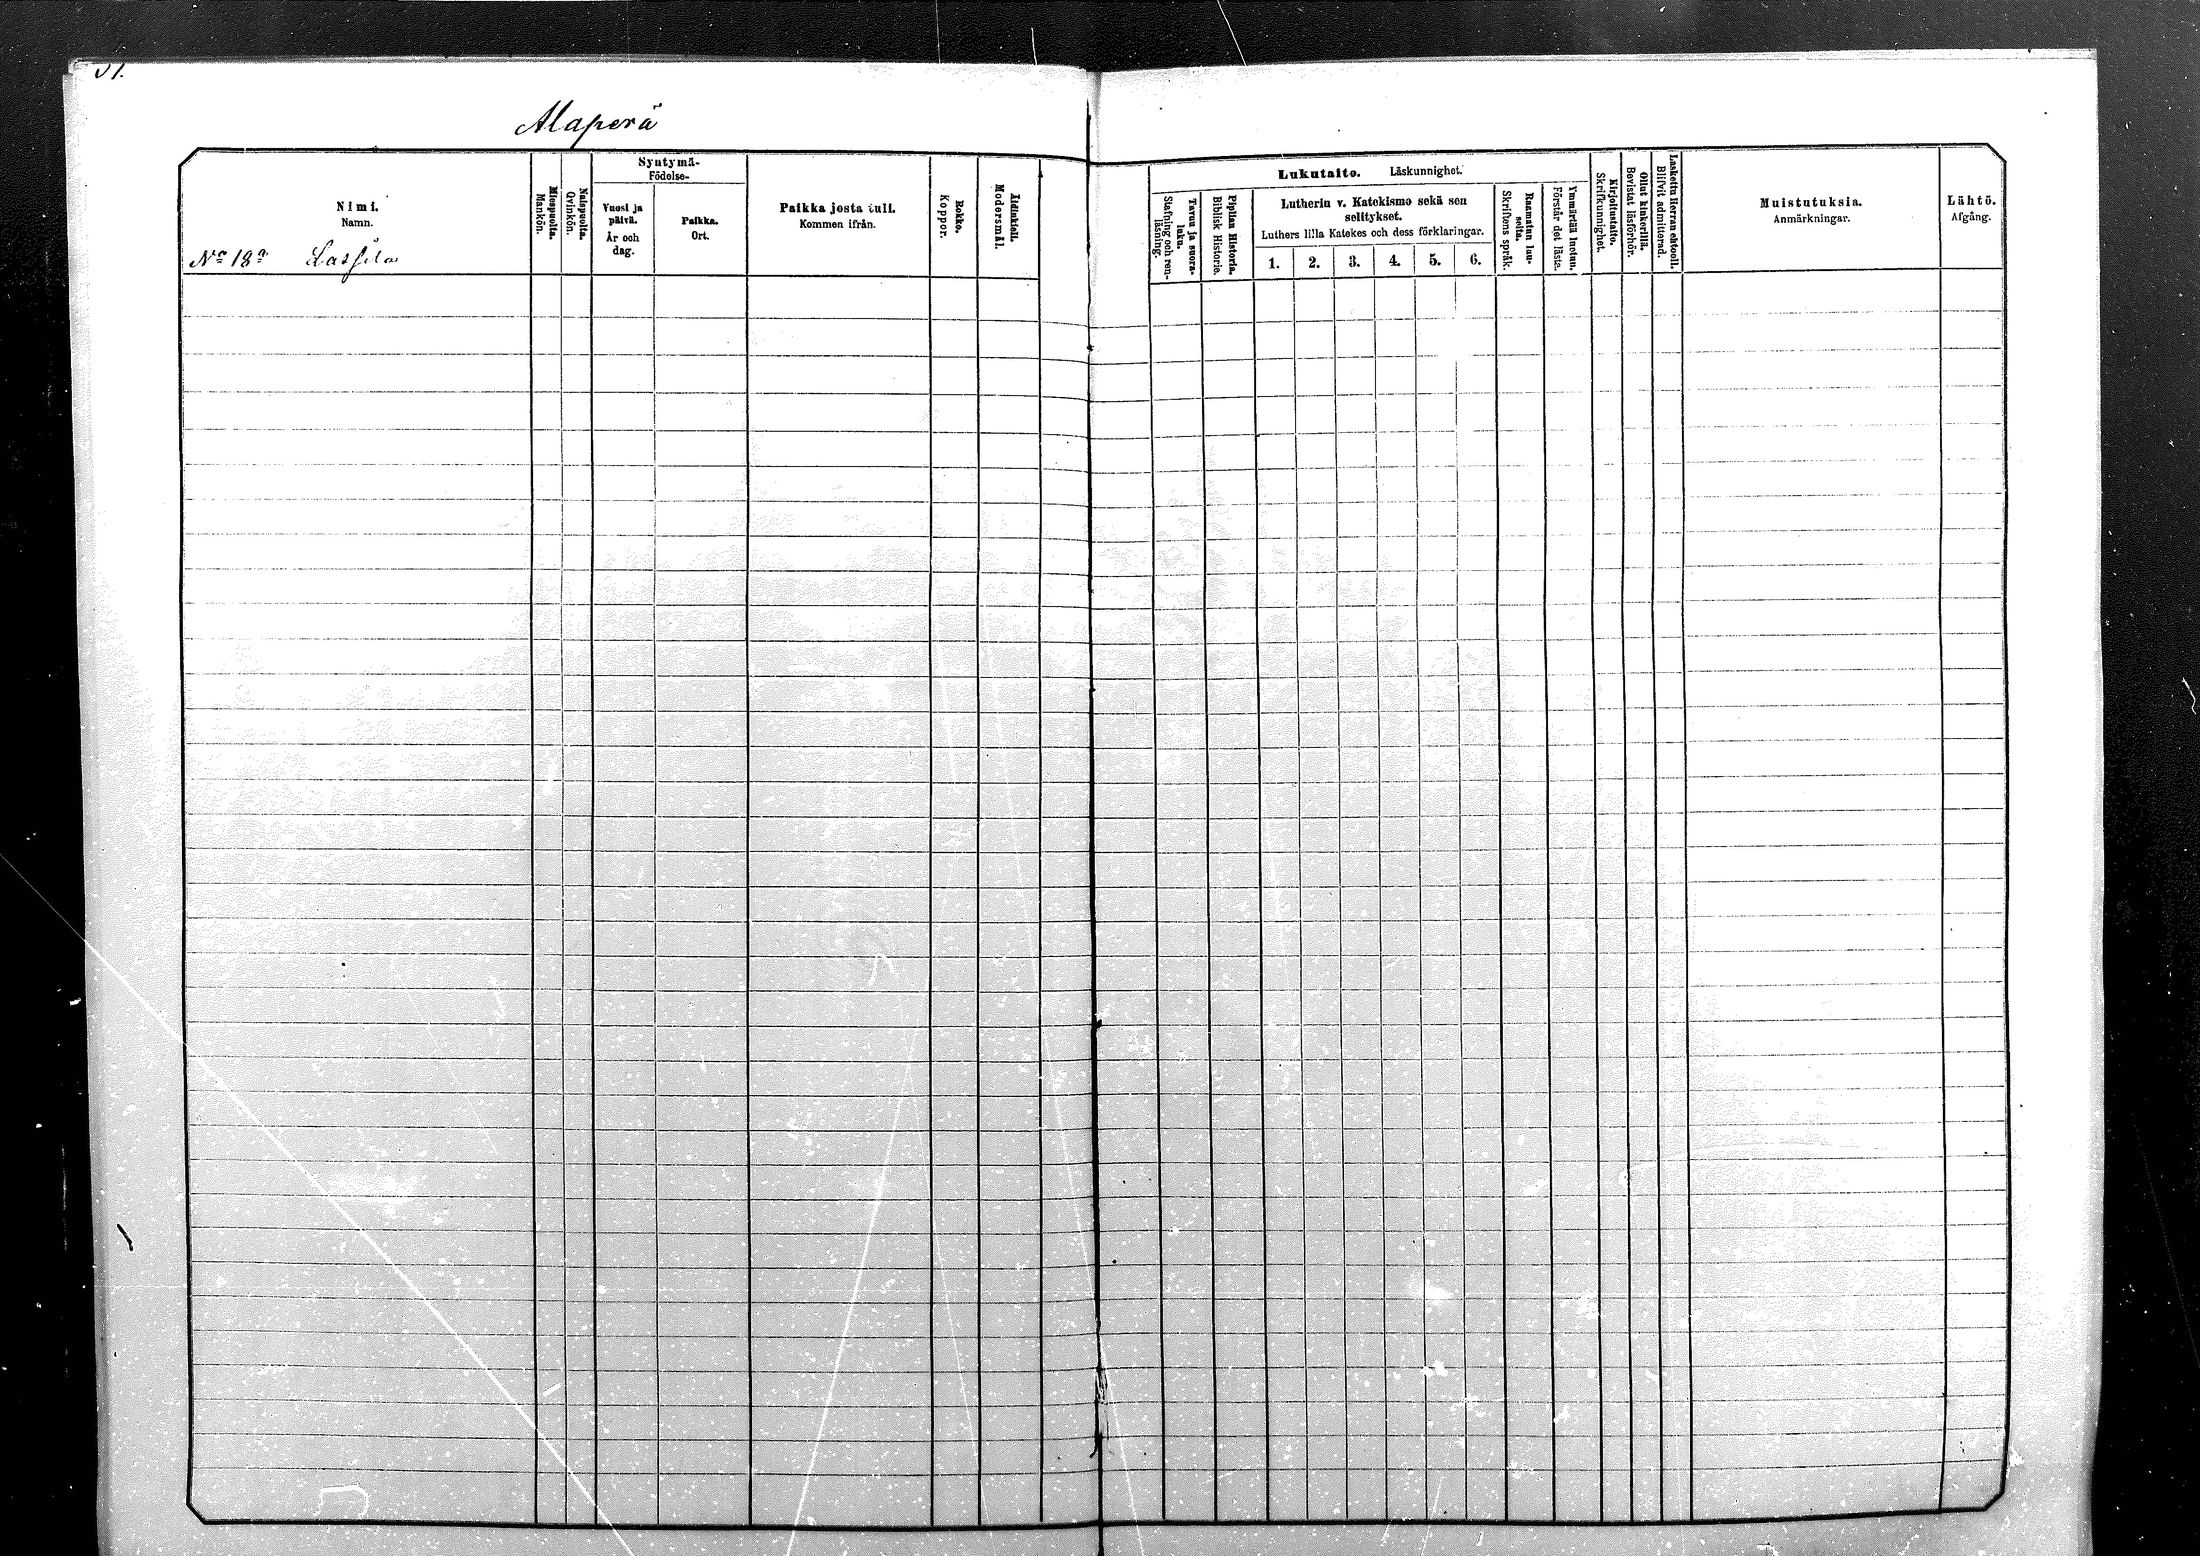 Alaperä
Nimi.
Namn.
No 18a Lassila
Miespuolta.
Mankön.
Naispuolta.
Qvinkön.
Syntymä-
Födelse-
Vuosi ja
päivä.
År och
dag.
Paikka.
Ort.
Paikka josta tuli.
Kommen ifrån.
Rokko.
Koppor.
Äidinkieli.
Modersmål.
Lukutaito. Läskunnighet.
Tavuu ja suora-
luku.
Stafning och ren-
läsning.
Piplian Historia.
Biblisk Historie.
Lutherin v. Katekismo sekä sen
selitykset.
Luthers lilla Katekes och dess förklaringar.
1. 2. 3. 4. 5. 6.
Raamatun lau-
seita.
Skriftens språk.
Ymmärtää luetun.
Förstår det lästa.
Kirjoitustaito.
Skrifkunnighet.
Ollut kinkerillä.
Bevistat läsförhör.
Laskettu Herran ehtooll.
Blifvit admitterad.
Muistutuksia.
Anmärkningar.
Lähtö.
Afgång.